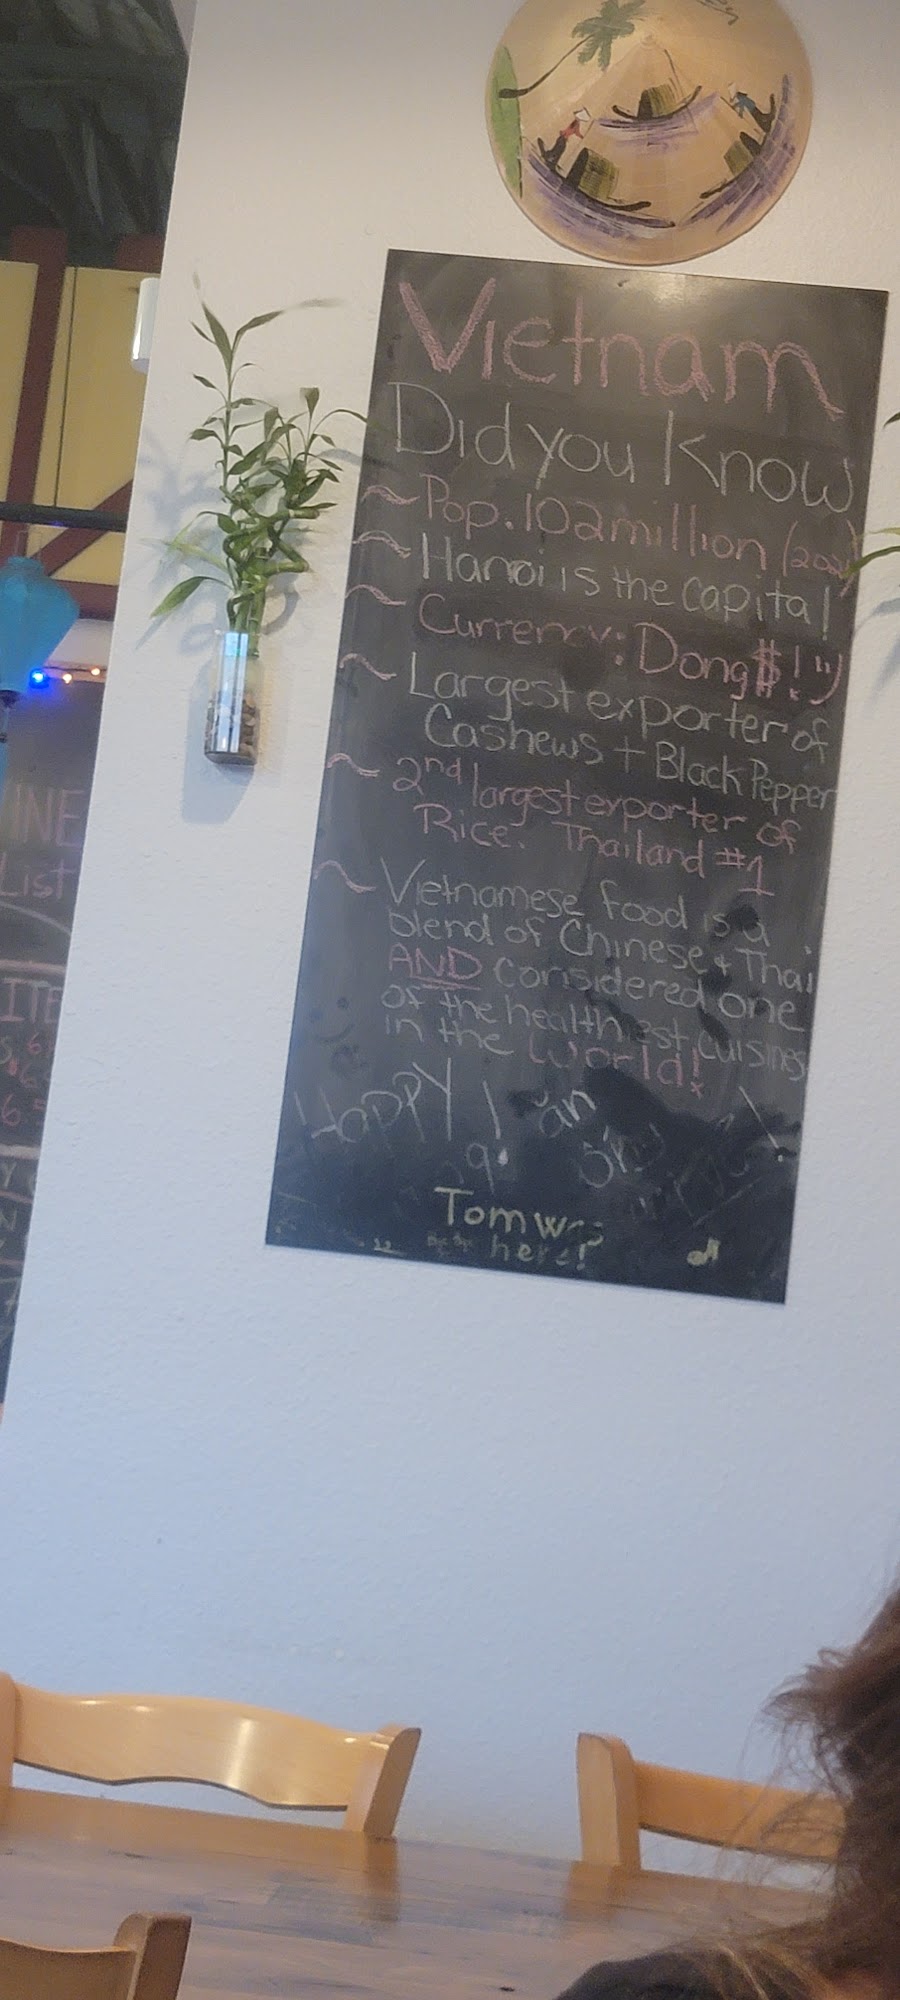 Vietnam
Did you Know
~Pop. 102 million (202
~Hanoi is the capital!
~Currency: Dong $! ")
~Largest exporter of
Cashews + Black Pepper
~2nd largest exporter of
Rice. Thailand #1
~Vietnamese food is a
blend of Chinese + Thai
AND Considered one
of the healthiest cuisines
in the World!
HAPPY
Tom was
here!
INE
List
ITE